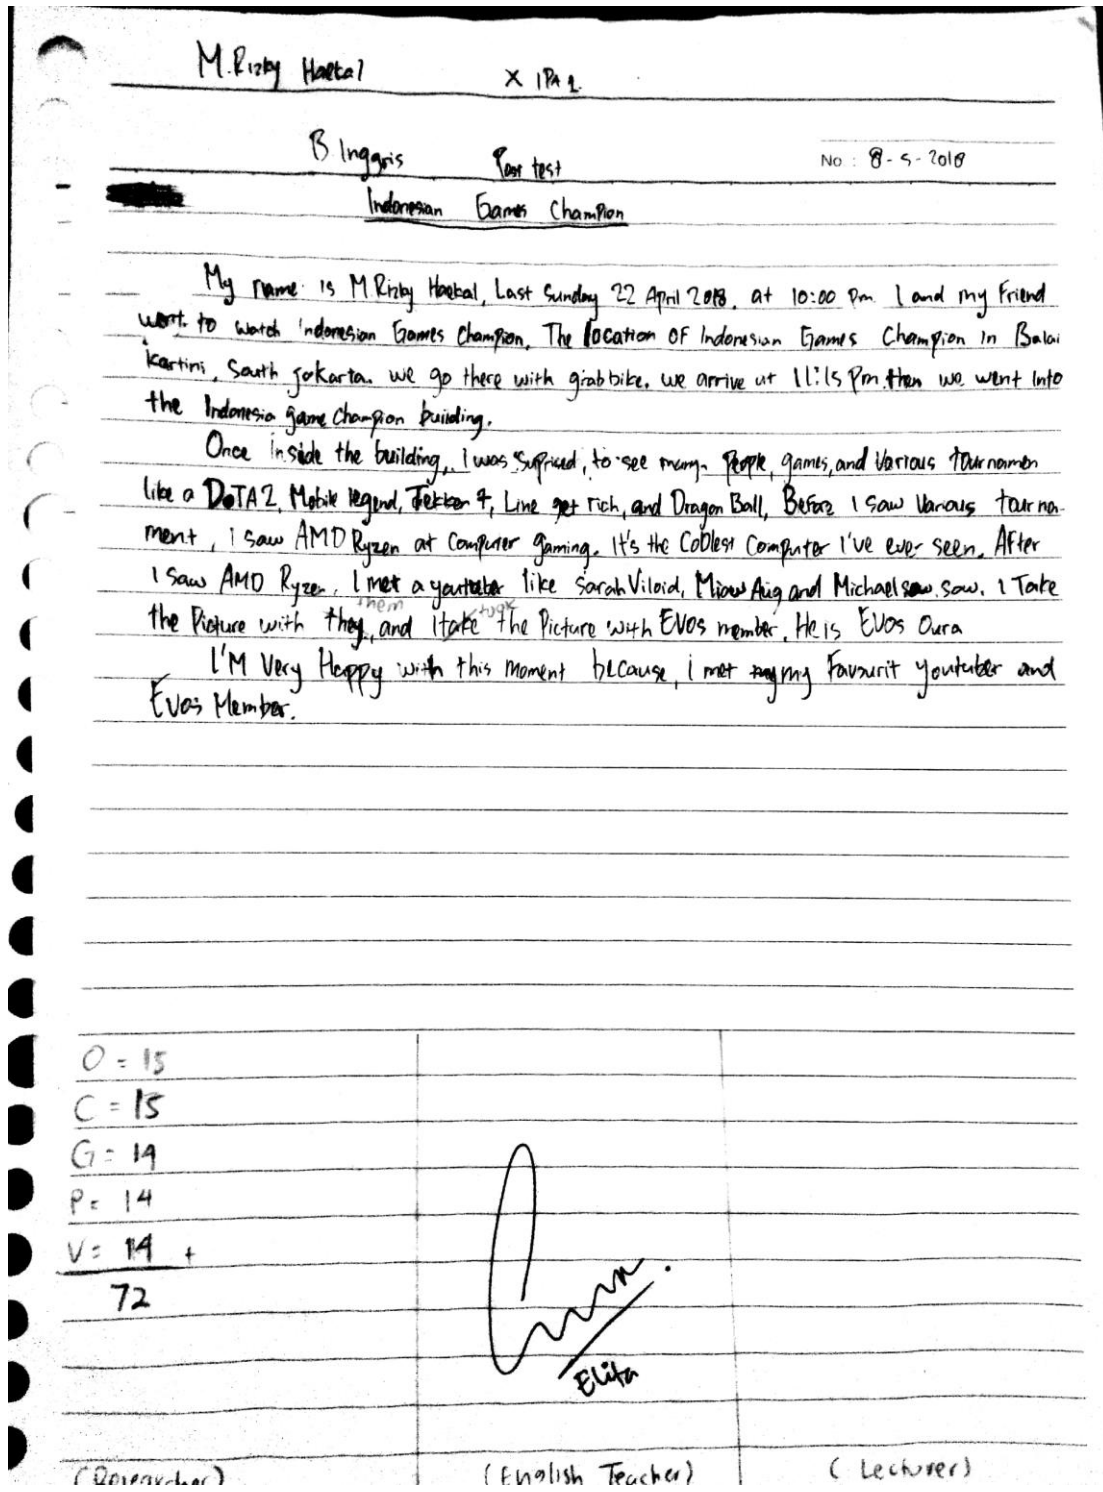 M. Rizky Haekal X IPA 2
B Inggris Post test No : 8-5-2018
Indonesian Games Champion
My name is M. Rizky Haekal, Last Sunday 22 April 2018. at 10:00 Pm. I and my Friend
went to watch indonesian Games Champion. The location OF Indonesian Games Champion in Balai
kartini, South jakarta. we go there with grabbike. we arrive at 11:15 Pm. then we went into
the Indonesia game champion building.
Once inside the building, I was supriced, to see many People, games, and Various tournamen
like a DOTA 2, Mobile legend, Tekken 7, Line get rich, and Dragon Ball, Before I saw Various tourna-
ment, i saw AMD Ryzen at Computer gaming. It's the Coolest Computer I've ever seen. After
I saw AMD Ryzen, I met a youtuber like Sarah Viloid, Miaw Aug and Michael saw. I Take
them took
the Picture with they, and I take the Picture with EVOS member. He is EVOS Oura
I'M Very Happy with this moment because, i met my Favourit youtuber and
Evos Member.
O = 15
C = 15
G = 14
P = 14
V = 14 +
72
Elita
(Researcher) (English Teacher) (Lecturer)